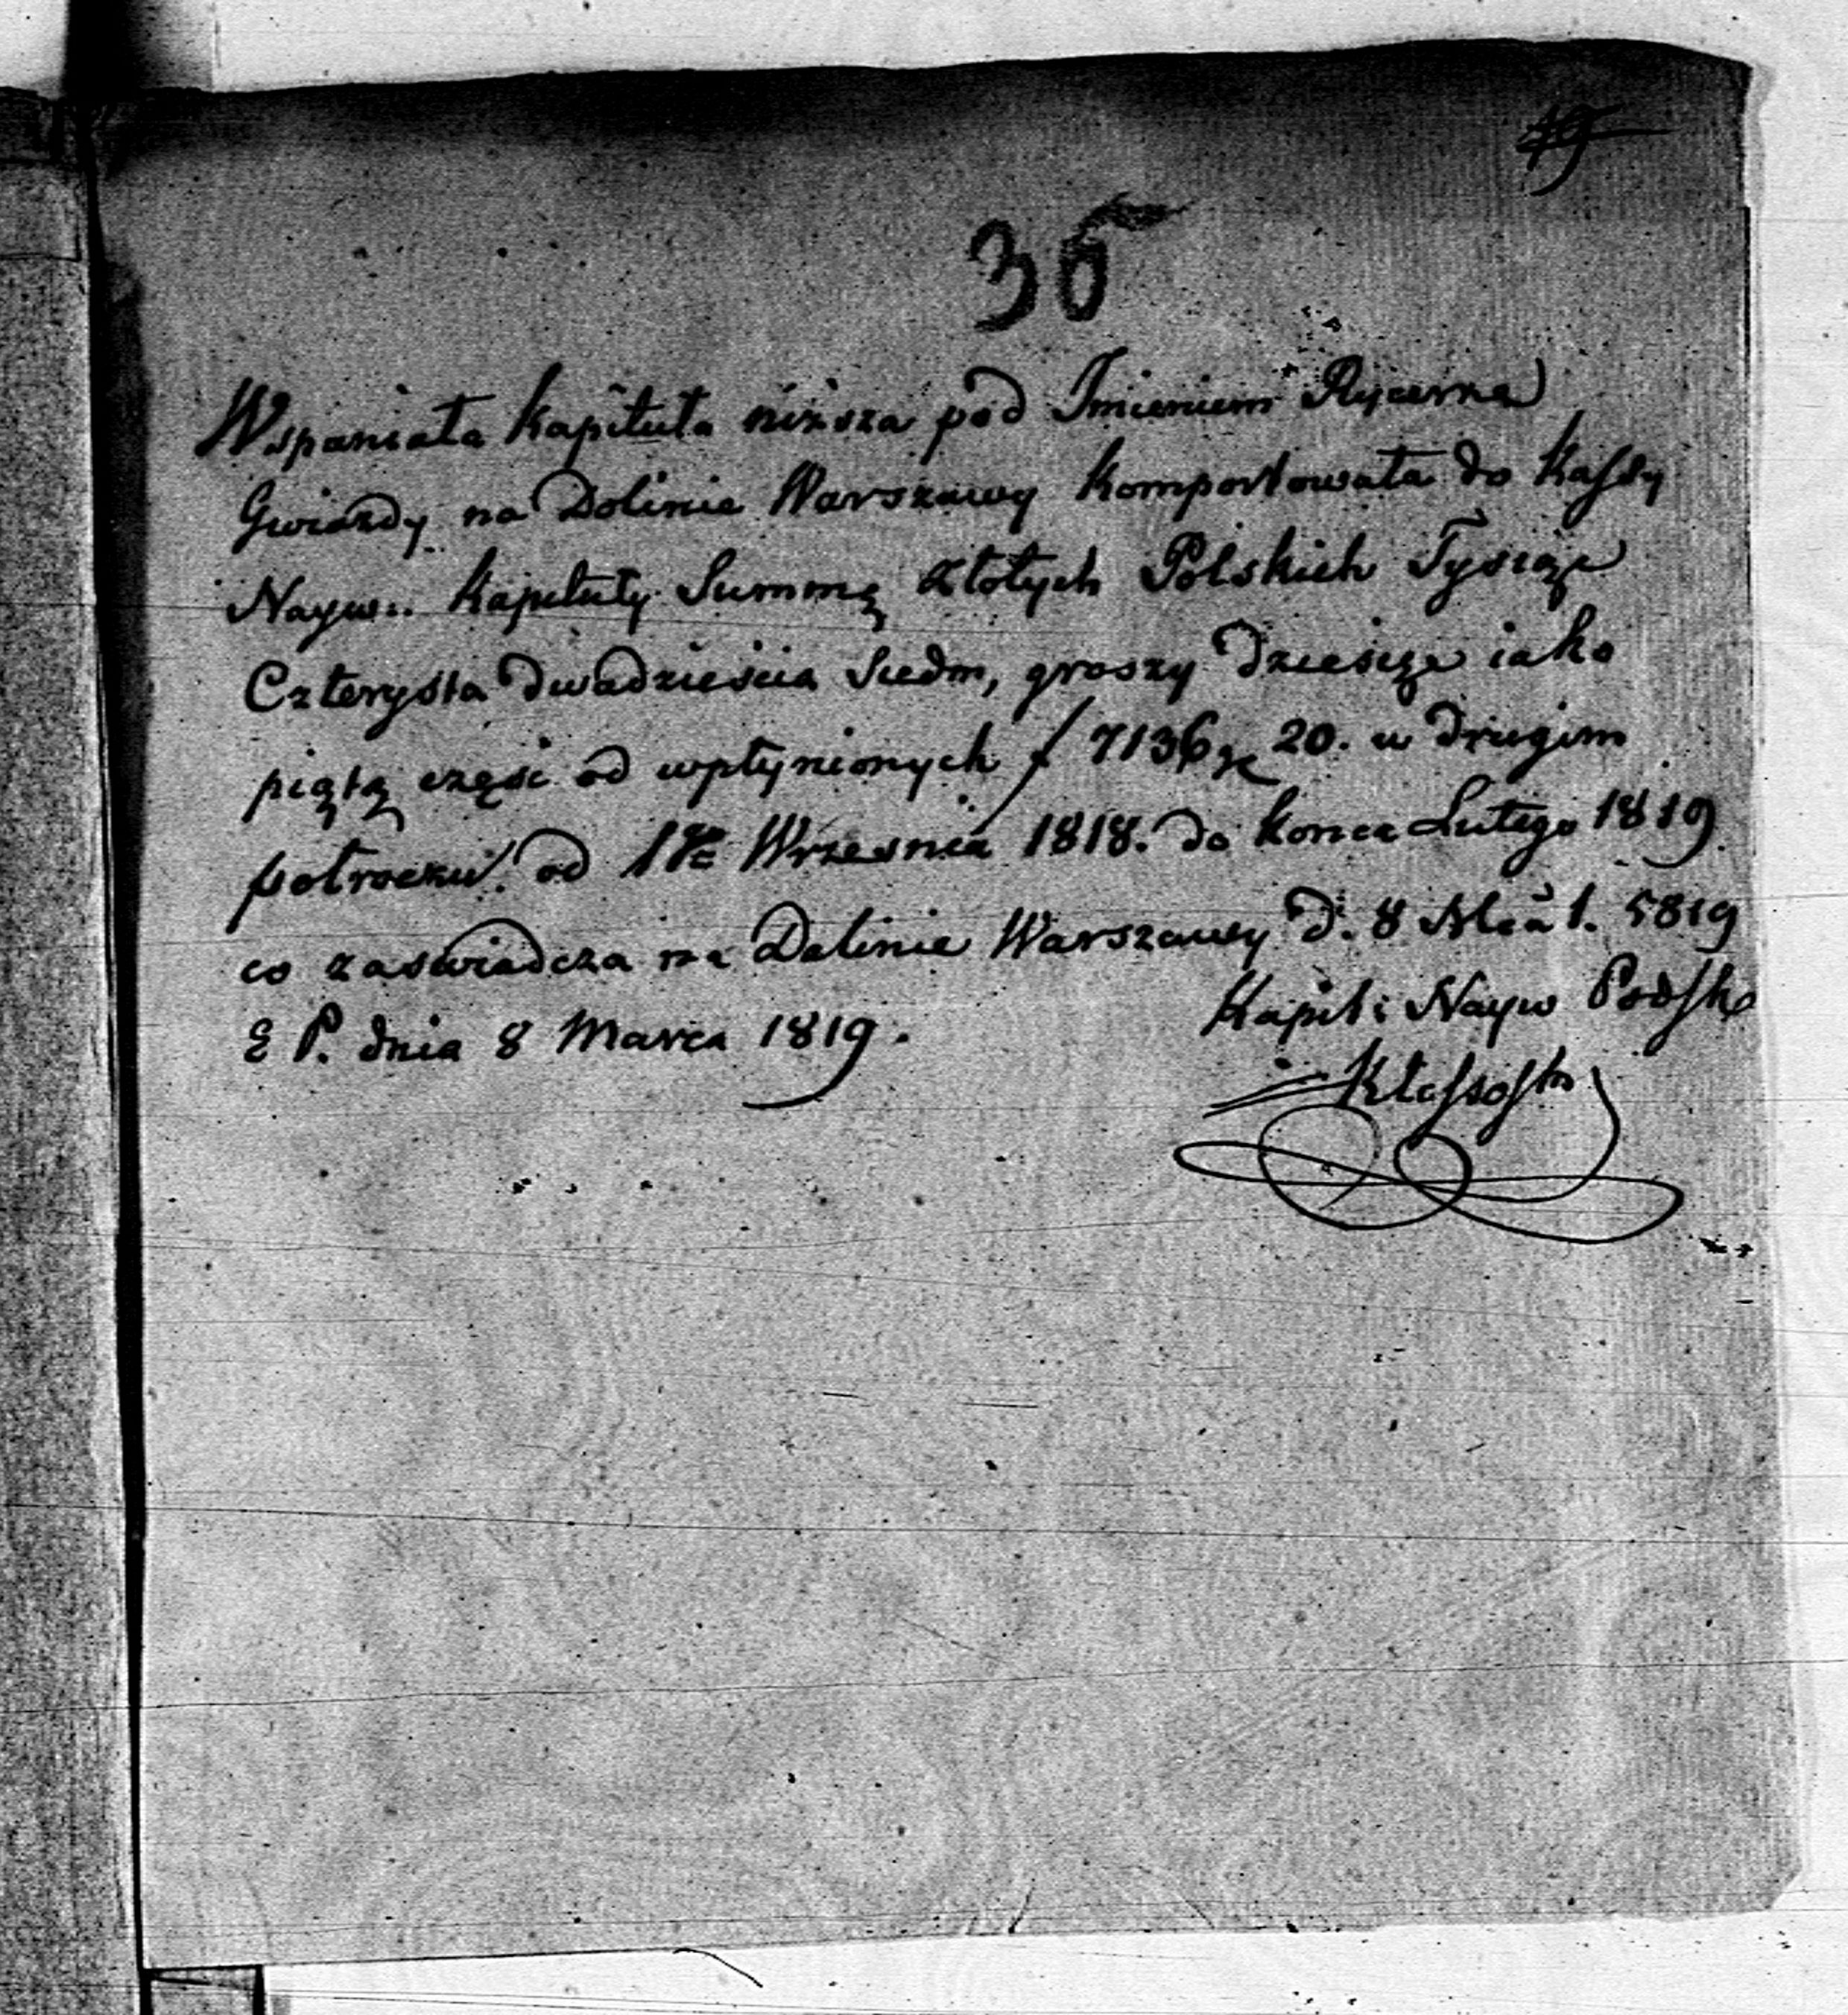 36
Wspaniała Kapituła niższa pod Imieniem Rycerza
Gwiazdy na Dolinie Warszawy komportowała do Kassy
Nayw.. Kapituły Summę złotych Polskich Tysiąc
Czterysta dwadzieścia Siedm, groszy dziesięć iako
piątą część od wpłynionych f 7136 gr 20. w drugim
półroczu od 1go Września 1818. do końca Lutego 1819
co zaświadcza na Dolinie Warszawy d. 8 Mca 1. 5819
E P. dnia 8 Marca 1819.
Kapit: Nayw Podsk